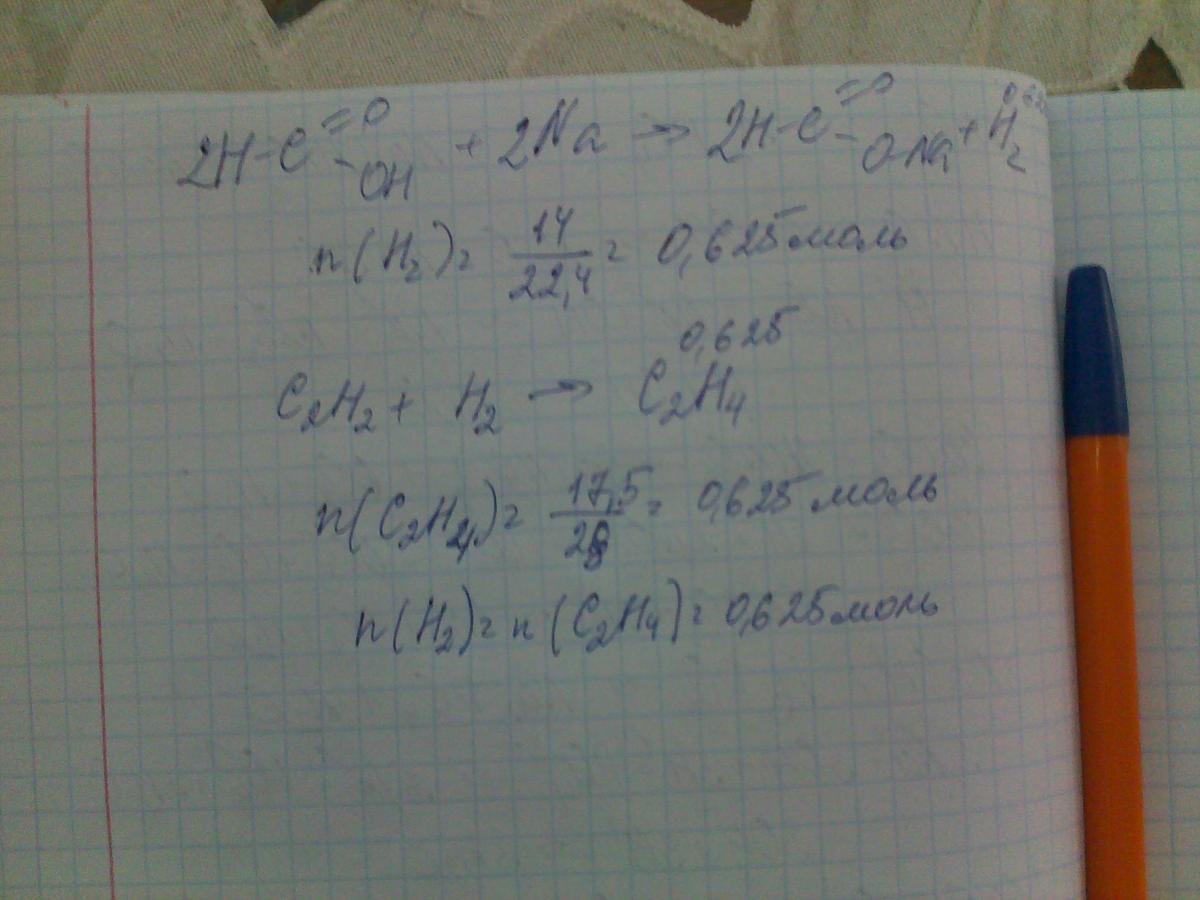 2H-C=O-OH + 2Na → 2H-C=O-ONa + H₂
n(H₂) = 14/22,4 = 0,625 моль
0,625
C₂H₂ + H₂ → C₂H₄
n(C₂H₄) = 17,5/28 = 0,625 моль
n(H₂) = n(C₂H₄) = 0,625 моль